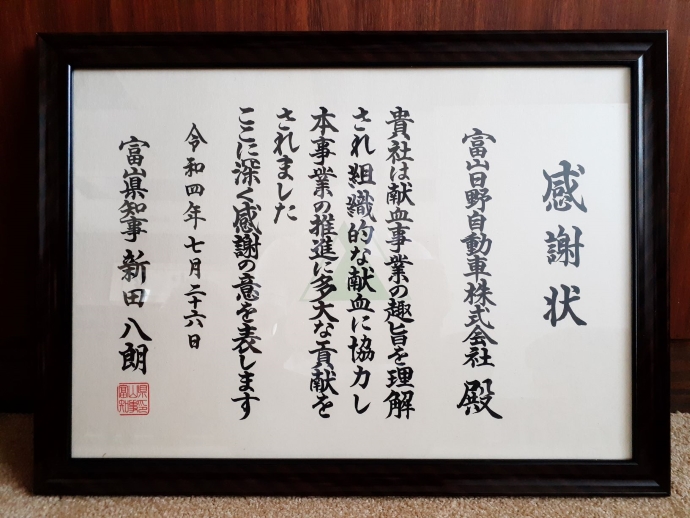 感謝状
富山日野自動車株式会社 殿
貴社は献血事業の趣旨を理解
され組織的な献血に協力し
本事業の推進に多大な貢献を
されました
ここに深く感謝の意を表します
令和四年七月二十六日
富山県知事 新田八朗
富山県知事印